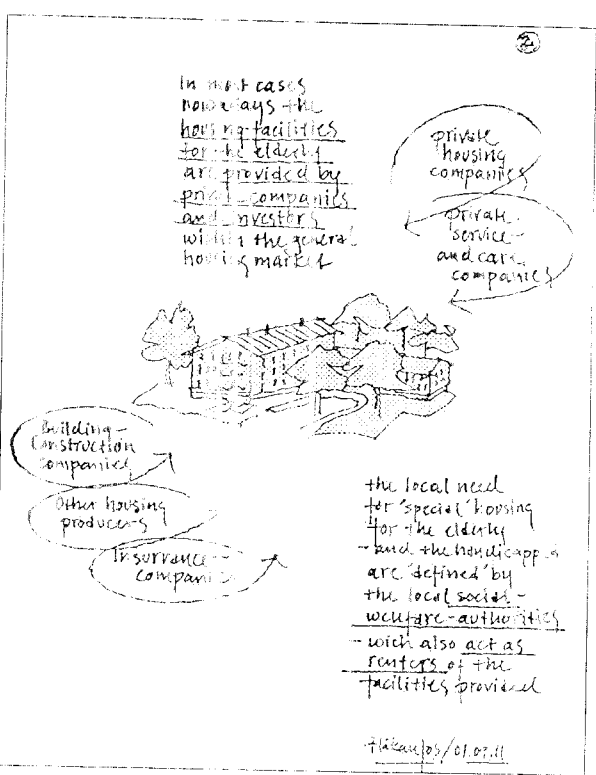 In most cases
nowadays the
housing-facilities
for the elderly
are provided by
private companies
and investors
within the general
housing market
private
housing
companies
private
service-
and care
companies
Building-
Construction
companies
Other housing
producers
Insurrance-
companies
the local need
for 'special' housing
for the elderly
- and the handicapped
are 'defined' by
the local social-
welfare-authorities
- wich also act as
renters of the
facilities provided